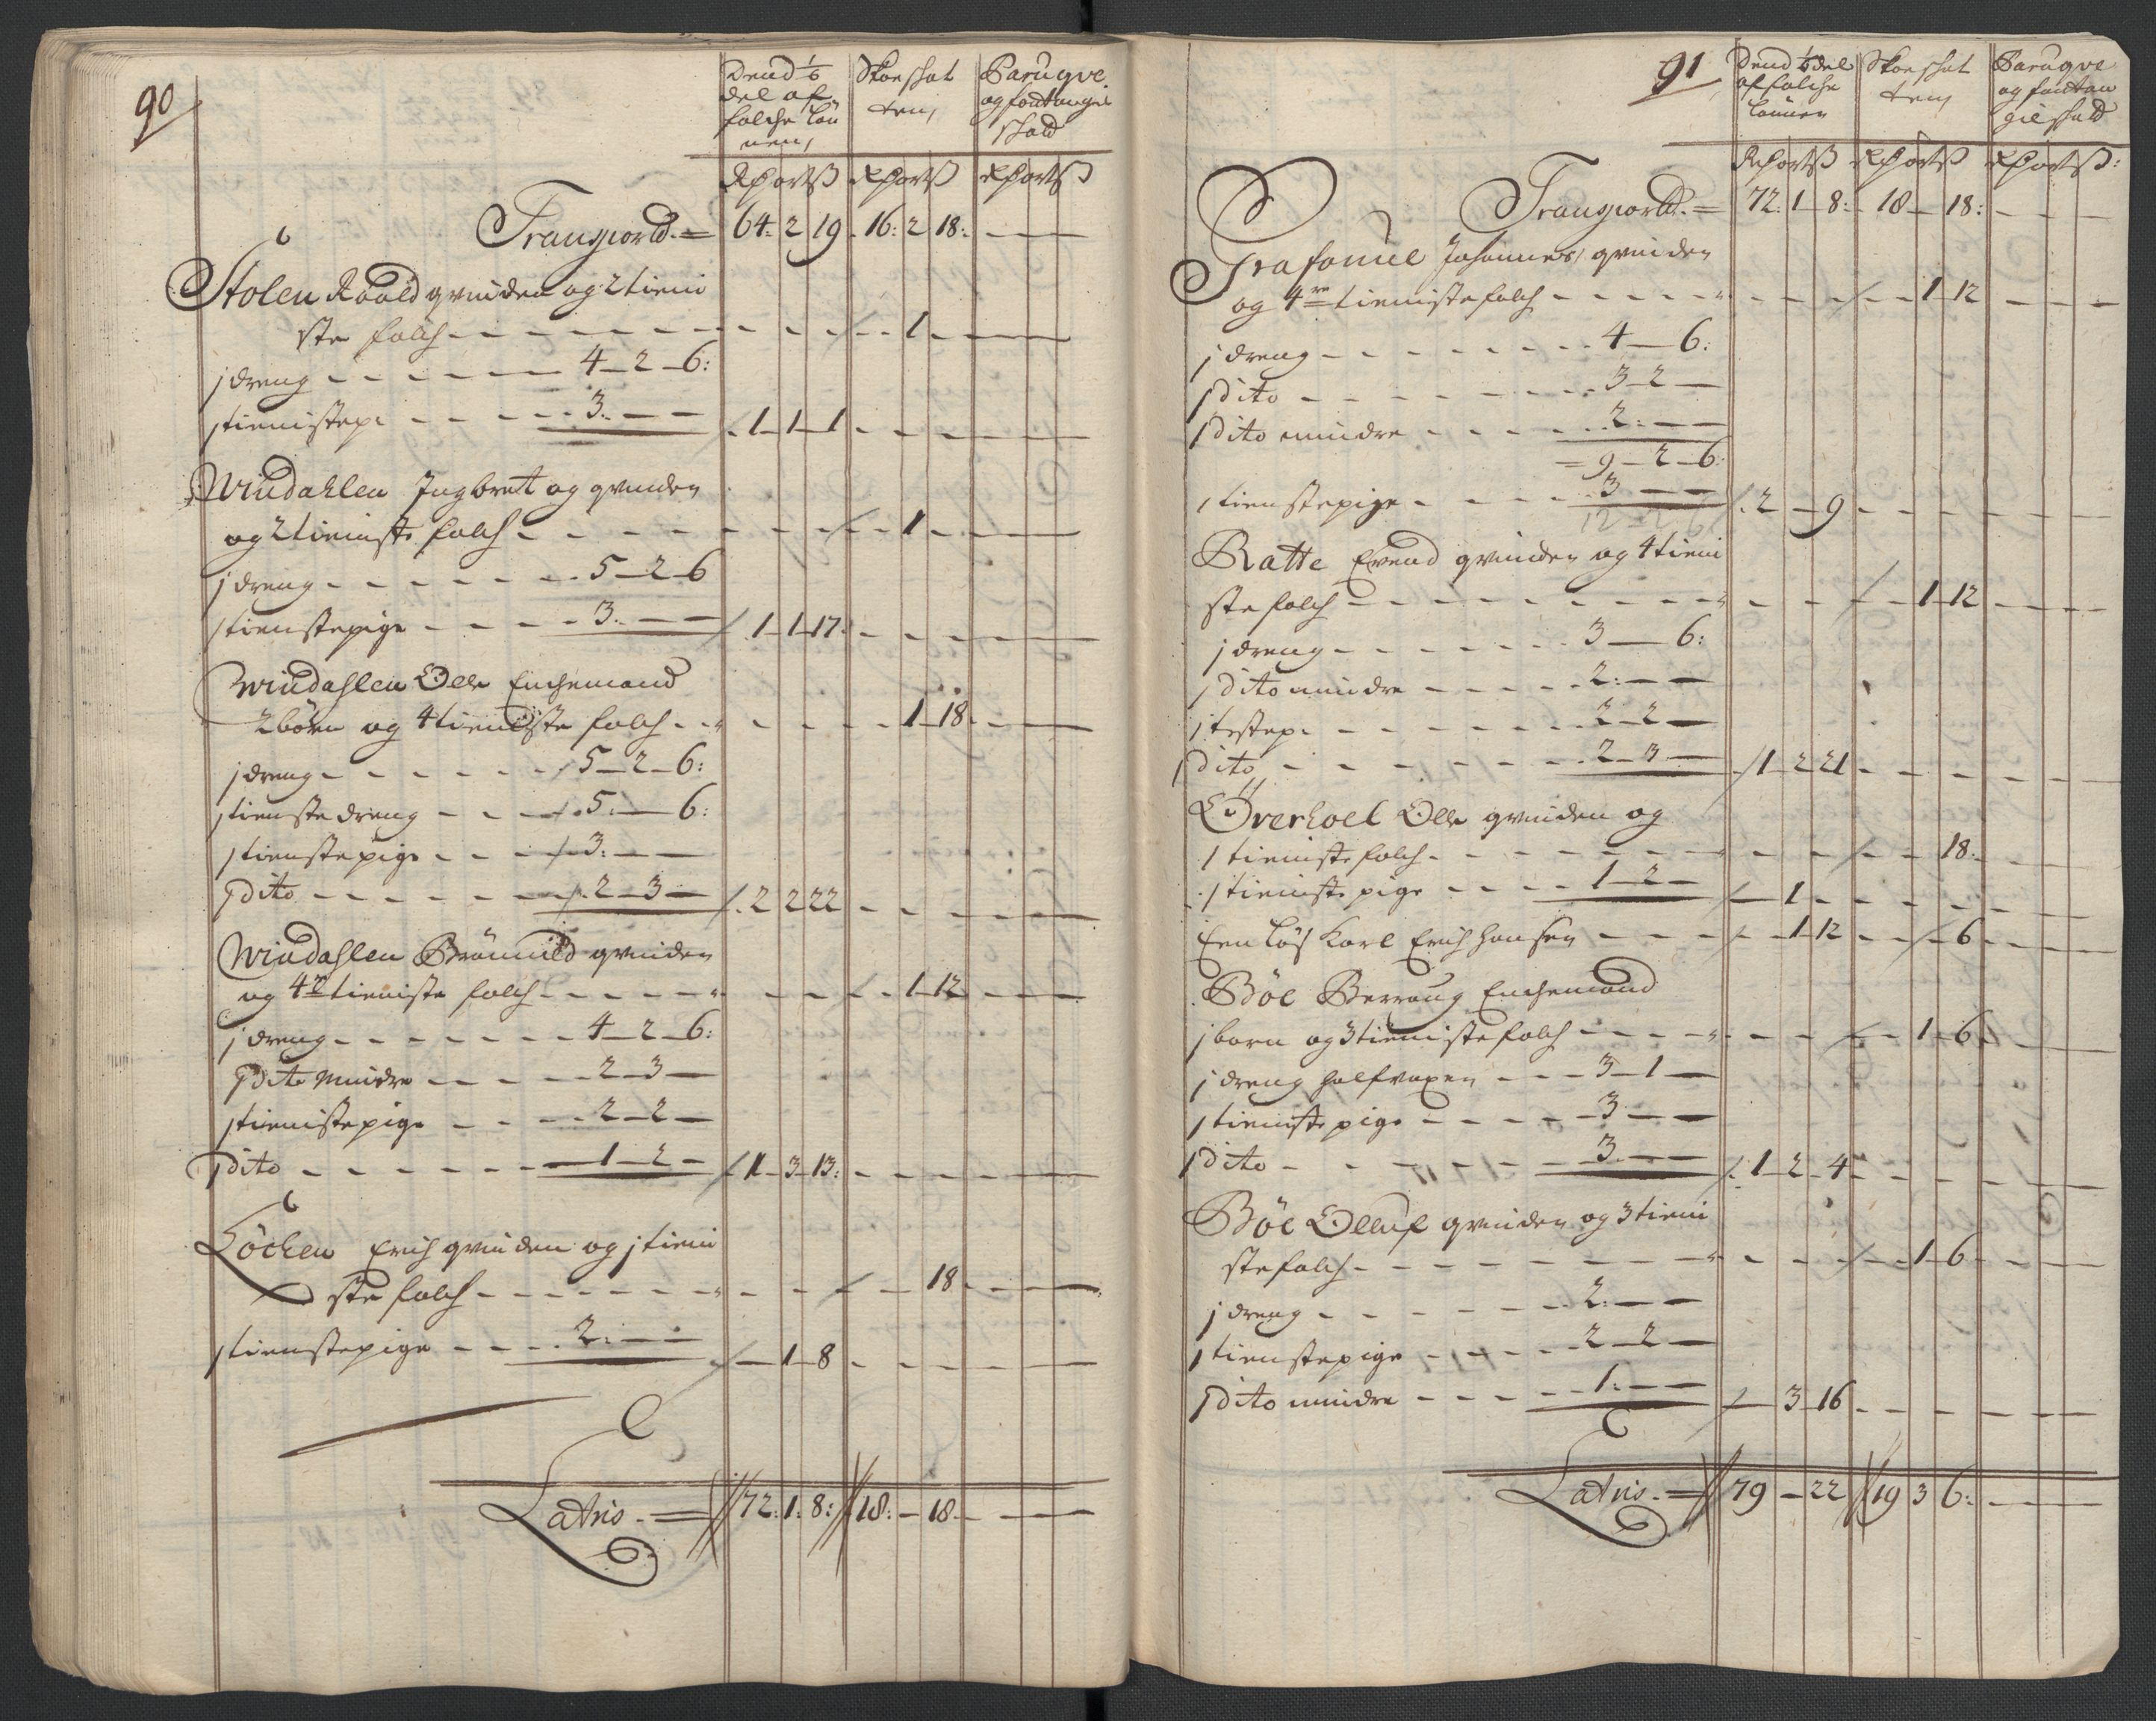 90
Dend 1/6 del af folche lønnen, | Skoe shat ten, | Paruqve og fontangie shatt
Rd ort ß | Rd ort ß | Rd ort ß
Transport = 64: 2 19 - 16: 2 18: - - -
Stolen Roald qvinden og 2 tieni
ste folch - - - - 1 - - -
1 dreng - - - 4 - 2 - 6:
1 tienistepi - - - 3: - - 1 - 1 - 1 - - -
Windahlen Ingbret og qvinden
og 2 tieniste folch - - - - 1 - - -
1 dreng - - - 5 - 2 - 6
1 tienstepige - - - 3: - - 1 - 1 - 17: - - -
Windahlen Olle Enchemand
2 börn og 4 tieniste folch - - - 1 - 18 - - -
1 dreng - - - 5 - 2 - 6:
1 tienste dreng - - - 5: - 6:
1 tienstepige - - - 3: - -
1 dito - - - 2 - 3 - 2 2 22 - - -
Windahlen Brönild qvinden
og 4re tieniste folch - - - - 1 - 12 - - -
1 dreng - - - 4 - 2 - 6:
1 dito mindre - - - 2 - 3 -
1 tienistepige - - - 2 - 2 -
1 dito - - - 1 - 2 - 1 - 3 - 13: - - -
Löchen Erich qvinden og 1 tieni
ste folch - - - - 18 - - -
1 tienstepige - - - 2: - - - 1 - 8 - - -
Latris = 72: 1: 8: 18: - 18 - - -
91
Dend 1/6 del af folche lønnen | Skoe shat ten, | Paruqve og fontan gie shatt
Rd ort ß | Rd ort ß | Rd ort ß:
Transport = 72: 1 - 8: - 18 - 18: - - -
Johannes qvinden
og 4re tieniste folch - - - - 1 - 12 - - -
1 dreng - - - 4 - 6:
1 dito - - - 3 - 2 -
1 dito mindre - - - 2: - -
= 9 - 2 - 6:
1 tienstepige - - - 3 - - 2 - 9 - - -
12 - 2 - 6
Ratte Evend qvinden og 4 tieni
ste folch - - - - 1 - 12 - - -
1 dreng - - - 3 - 6:
1 dito mindre - - - 2: - -
1 tstepi - - - 2 - 2 -
1 dito - - - 2 - 3 - 1 - 2 21 - - -
Överhoel Olle qvinden og
1 tieniste folch - - - - 18: - -
1 tieniste pige - - - 1 - 2 - - 1 - - - -
Een löß Karl Erich Hansen - - - - 1 12 - - 6 - - -
Böe Berraug Enchemand
1 barn og 3 tieniste folch - - - - 1 - 6 - - -
1 dreng halfvoxen - - - 3 - 1 -
1 tieniste pige - - - 3: - -
1 dito - - - 3: - - 1 - 2 - 4 - - -
Böe Olluf qvinden og 3 tieni
ste folch - - - - 1 - 6 - - -
1 dreng - - - 2: - -
1 tienstepige - - - 2 - 2 -
1 dito mindre - - - 1: - - - 3 - 16 - - -
Latris = 79 - 22 19 3 6: - - -